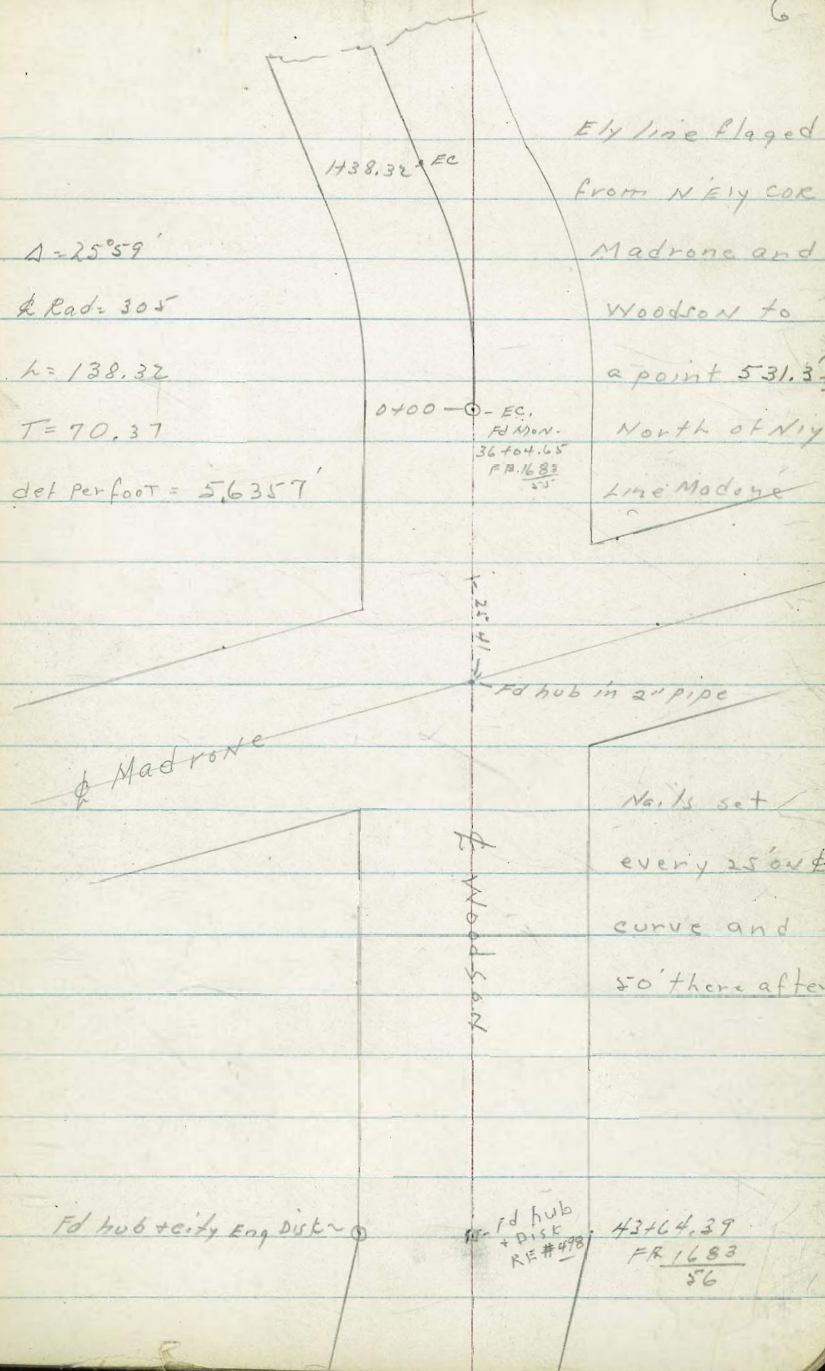 6
Ely line flaged
from N'Ely COR
Madrone and
Woodson to
a point 531.3'
North of N'ly
Line Madone
1+38.32 EC
Δ=25°59'
℄ Rad= 305
L= 138.32
T= 70.37
def per foot = 5.6357'
0+00 - EC.
Fd Mon.
36+04.65
FB.1683
55
25.41
Fd hub in 2" pipe
℄ Madrone
℄ Woodson
Nails set
every 25' on ℄
curve and
50' there after
Fd hub + city Eng Disk
Fd hub
+ Disk
RE #498
43+64.39
FB 1683
56